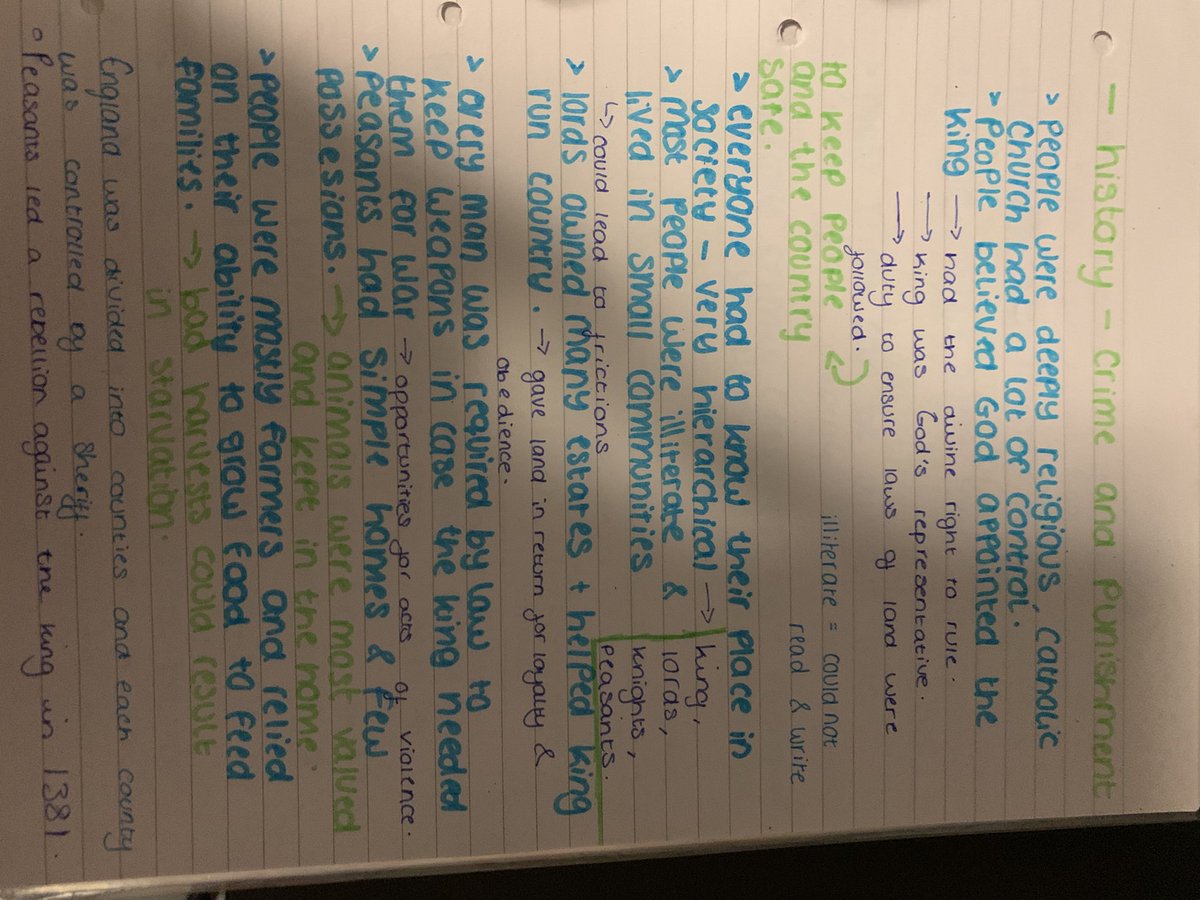 — history - crime and punishment
> people were deeply religious, catholic
church had a lot of control.
> People believed God appointed the
king → had the divine right to rule.
→ king was God's representative.
→ duty to ensure laws of land were
followed.
to keep people
and the country
safe.
illiterate = could not
read & write
> everyone had to know their place in
society - very hierarchical →
king,
lords,
knights,
peasants.
> most people were illiterate &
lived in small communities
↳ could lead to frictions
> lords owned many estates + helped king
run country. → gave land in return for loyalty &
obedience.
> every man was required by law to
keep weapons in case the king needed
them for war → opportunities for acts of violence.
> peasants had simple homes & few
possesions. → animals were most valued
and kept in the home
> people were mostly farmers and relied
on their ability to grow food to feed
families. → bad harvests could result
in starvation.
England was divided into counties and each county
was controlled by a sheriff.
• Peasants led a rebellion against the king in 1381.